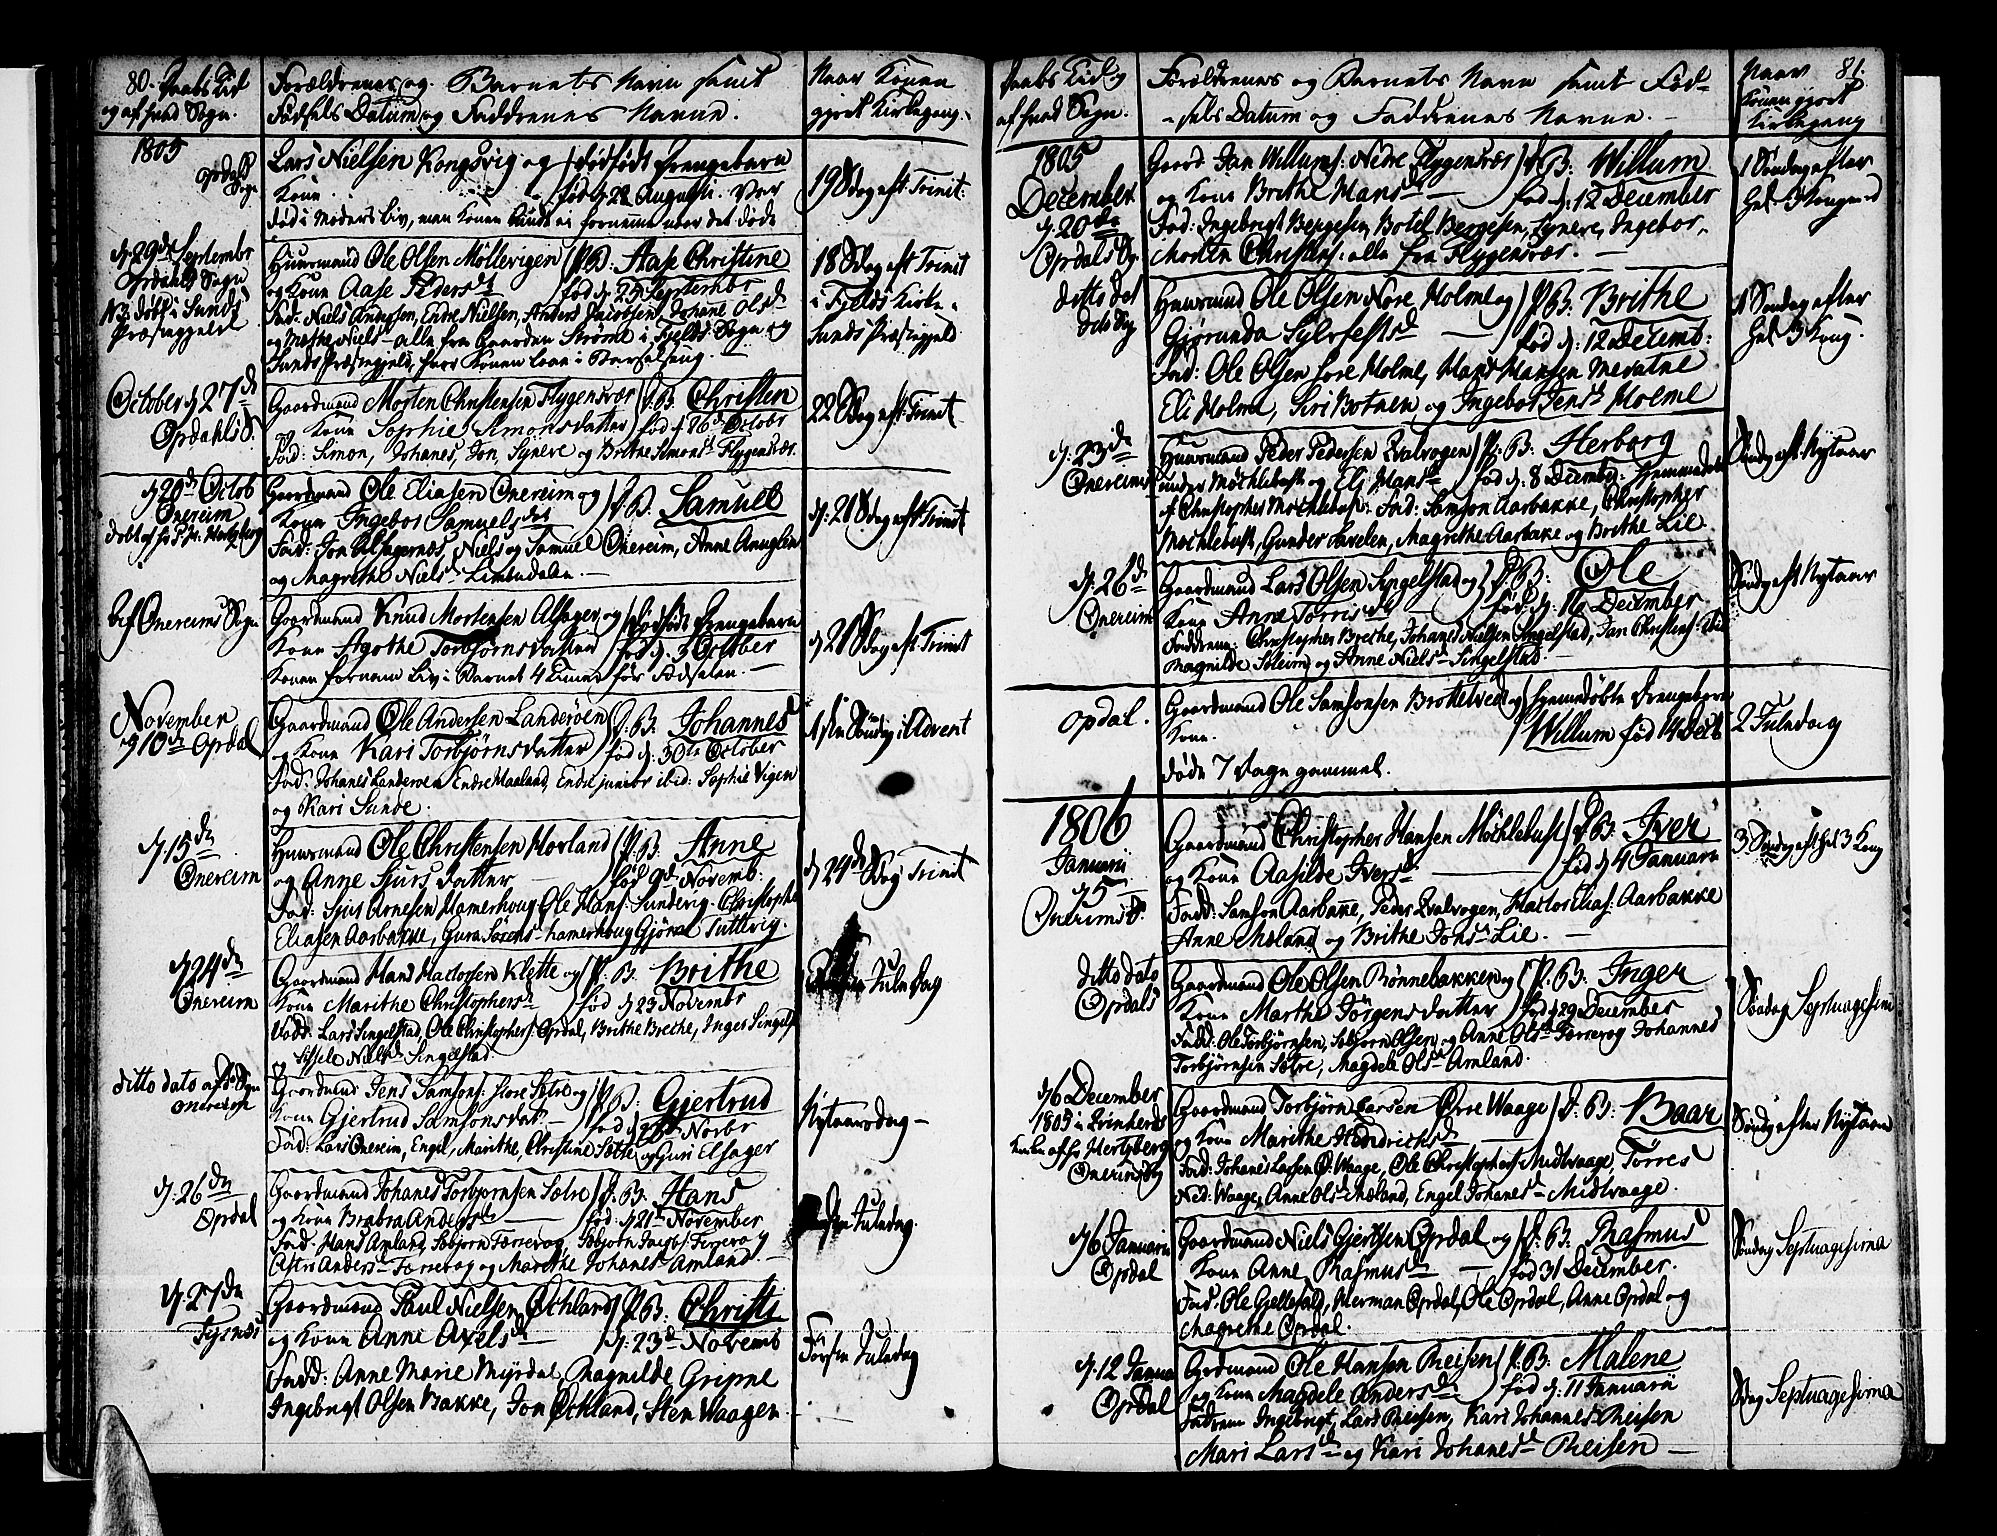 80. Daabs Tid
og af hvad Sogn.
Forældrenes og Barnets Navn samt
Fødsels Datum og Faddrenes Navne.
Naar Konen
gjort Kirkegang.
1805
Opdals
Sogn
Lars Nielsen Kongsvig og
Kone
dødfødt Drengebarn
fød d. 22 Augusti. Var
død i Moders Liv, men Konen kunde ei fornemme naar det døde
19 S.dag aft Trinit.
d. 29de Septembr
Opdahls Sogn
NB. døbt i Sunds
Præstegjeld
Huusmand Ole Olsen Møllevigen
og Kone Aase Peders d.
P. B. Aase Christine
fød d. 25 Septembr
Fad: Niels Andersen, Endre Nielsen, Anders Jacobsen, Johane Ols d.
og Marthe Niels d. alle fra Gaarden Strøme i Fjelds Sogn og
Sunds Præstegjeld, hvor Konen laae i Barselseng.
18 S.dag aft Trinit
i Fjelds Kirke
Sunds Præstegjeld
October d. 27de
Opdahls S.
Gaardmand Morten Christensen Flygensvær
og Kone Sophie Simonsdatter
D. B. Christen
fød d. 26de Octobr
Fad: Simon, Johanes, Jon, Syneve og Brithe Simons d. Flygensvær.
22 S.dag aft: Trinit
d. 20de Octob
Onereim
døbt af Hr P. H. Hertzberg
Gaardmand Ole Eliasen Onereim og
Kone Ingebor Samuels dat
D. B. Samuel
Fad: Jon Alsagernæs, Niels og Samuel Onereim, Anne
og Magrethe Niels d. Limbudalen.
d. 21 S.dag aft Trinit
bef. Onereims Sogn
Gaardmand Knud Mortensen Alsager og
Kone Agothe Torbjørnsdatter
dødfødt Drengebarn
fød d. 3 October
Konen fornam Liv i Barnet 4 Timer før Fødselen.
d. 21 S.dag aft Trinit
November
d. 10de Opdal
Gaardmand Ole Andersen Landerøen
og Kone Kari Torbjørnsdatter
D. B. Johannes
fød d. 30te October
Fad: Johanes Landerøen Endre Maaland, Endre junior ibid: Sophie Vigen
og Kari Sunde.
1ste Søndag i Advent
d. 15de
Onereim
Huusmand Ole Christensen Hovland
og Anne Sjursdatter
P. B. Anne
fød 9de Novemb.
Fad: Sjur Arnesen Hamerhoug Ole Hans: Sundvig. Christophe
Eliasen Aarbakke, Gura Sørens d. Hamerhoug Gjøron Tuttevig.
d. 24de S.dag Trinit
d. 24de
Onereim
Gaardmand Hans Hactorsen Klette og
Kone Marithe Christophers d.
P. B. Brithe
fød d. 23 Novembr
Fadd: Lars Singelstad, Ole Christophers: Opdal, Brithe Brethe, Inger Singelst
og Sissele Niels d. Singelstad.
Jule Dag
ditto dato af d: Sogn
Onereim
Gaardmand Jens Samsons: store Sætre og
Kone Gjertrud Samsonsdat
P. B. Gjertrud
Novbr
Fad: Lars Onereim, Engel, Marithe, Christine Sætre og Guri Elsager
Nytaarsdag
d. 26de
Opdal
Gaardmand Johanes Torbjørnsen Sætre
og Kone Brabra Anders d.
D. B. Hans
fød d. 21de November
Fad: Hans Amland, Sebjørn Færrevog,
Astri Anders d. Færrevog og Marithe Johanes d. Amland.
Juledag
d. 27de
Tysnes
Gaardmand Paul Nielsen Øchland
og Kone Anne Axels d.
P. B. Christi
d. 23de Novemb
Fadd: Anne Marie Myrdal, Magnilde Gripne
Ingebrigt Olsen Bakke, Jon Øchland, Sten Waagen
Første Juledag
Daabs Tid og
af hvad Sogn.
Forældrenes og Barnets Navn samt Fød-
sels Datum og Faddrenes Navne.
Naar 81.
Konen gjort
Kirkegang
1805
December
d. 20de
Opdals Sg.
Gaard Jan Willums: Nedre Flygensvær
og Kone Brithe Hans d.
D. B. Willum
fød d. 12 December
Fad: Ingebrigt Bergesen, Botel Bergesen, Synere, Ingebor,
Morten Christens: alle fra Flygensvær.
1 Søndag efter
Hel. 3 Konger
ditto det
dito Sg
Huusmand Ole Olsen Nore Holme og
Gjørunda Sylvfests d.
P. B. Brithe
fød d: 12 Decemb:
Fad: Ole Olsen Søre Holme, Hans Hansen Mevatne
Eli Holme, Siri Botnen og Ingebor Jens d. Holme
1 Søndag efter
Hel 3 Kong.
d. 23de
Onereims
Huusmand Peder Pedersen Qvalvogen
under Møchlebust og Eli Hans d.
P. B. Herborg
fød d. 8 Decembr. Hjemmedøbt
af Christopher Møchlebust. Fad: Samson Aarbakke, Christopher
Møchlebust, Gunder Lavelen, Magrethe Aarbakke og Brithe Lie
Søndag aft Nytaar
d. 26de
Onereim
Gaardmand Lars Olsen Singelstad og
Kone Anne Torris d.
D. B: Ole
fød d. 16 December
Faddrene: Christopher Brethe, Johanes Nielsen Singelstad, Jan Christens: Lie
Magnilde Søleim og Anne Niels d. Singelstad.
Søndag aft Nytaar
Opdal.
Gaardmand Ole Samsonsen Brottetved og
Kone.
Hjemdøbte Drengebarn
Willum fød 14 Decb
døde 7 Dage gammel.
2 Juledag
1806
Januarii
d. 5
Onereims S.
Gaardmand Christopher Hansen Møchlebust
og Kone Aasilde Ivers d.
D. B. Iver
fød d. 4 Januarii
Fadd: Samson Aarbakke, Peder Qvalvogen, Hactor Elias: Aarbakke
Anne Mæland og Brithe Johs d. Lie.
3 Søndag aft Hel 3 Kong
ditto dato
Opdals
Gaardmand Ole Olsen Rønnebakken og
Kone Marthe Jørgensdatter
P. B. Inger
fød d. 29 December
Fadd: Ole Torbjørnsen, Sebjørn Olsen og Anne Ols d. Færrevog Johannes
Torbjørnsen Sætre, Magdele Ols d. Amland.
Søndag Septuagesim
d. 6 December
1805 i Qvinherreds
Kirke af Hr Hertzberg
Onereims Sg
Gaardmand Torbjørn Larsen Øvre Waage
og Kone Marithe Hendrichs d.
D. B. Baar
Fad: Johanes Larsen Ø. Waage, Ole Christophers Midtwaage, Tørres
Ned: Waage, Anne Ols d. Mæland, Engel Johanes d. Midtvaage.
Søndag efter Nytaar
d. 6 Januarii
Opdal
Gaardmand Niels Gjertsen Opdal og
Kone Anne Rasmus d.
D. B: Rasmus
fød 31 December.
Fad: Ole Gjellefald, Herman Opdal, Ole Opdal, Anne Opdal og
Magrethe Opdal.
Søndag Septuagesima
d. 12 Janua
Opdal
Gaardmand Ole Hansen Reisen
og Kone Magdele Anders d.
P. B: Malene
fød d: 11 Januarii
Faddrene Ingebrigt, Lars Reisen, Kari Johannes d. Reisen
Mari Lars d. og Kari Johanes d. Reisen
S.dag Septuagesima